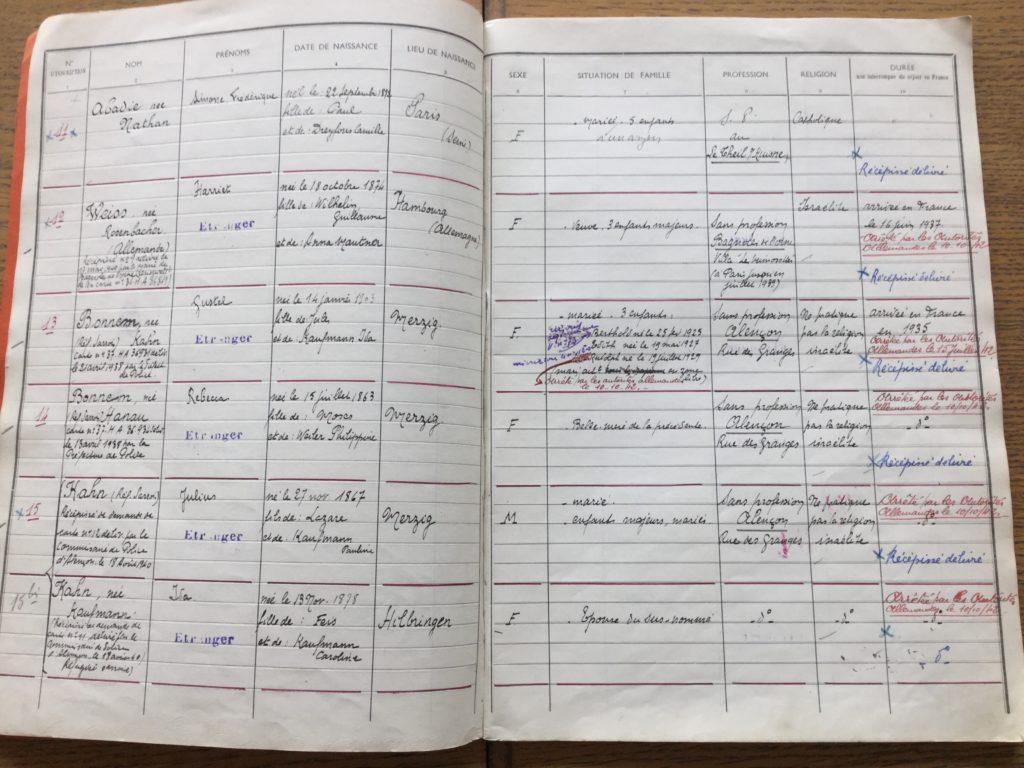 N° D'INSCRIPTION
NOM
PRÉNOMS
DATE DE NAISSANCE
LIEU DE NAISSANCE
1
2
3
4
5
11
Abadie née
Nathan
Simone Frédérique
né le 22 Septembre
fille de Paul
et de: Dreyfous Camille
Paris
(Seine)
12
Weiss, née
Rosenbacher
(Allemande)
Harriet
Etranger
née le 18 octobre 1874
fille de: Wilhelm
Guillaume
et de: Anna Mautner
Hambourg
(Allemagne)
13
Bonnem, née
(Réf. Sarroise) Kahn
carte n° 37. H A 36931 délit
le 21 avril 1938 par la Préfect
de Police.
Gustel
Etranger
née le 14 janvier 1903
fille de: Jules
et de: Kaufmann Ida
Merzig
14
Bonnem, née
Hanau
carte n° 37. H A 36 936 délit
le 13 avril 1938 par la
Préfecture de Police
Rebecca
Etranger
née le 15 juillet 1863
fille de: Moses
et de: Walter Philippine
Merzig
15
Kahn (Réf. Sarrois)
Récépissé de demande de
carte n° 12 délivré par le
Commissaire de Police
d'Alençon, le 18 Août 1940
Julius
Etranger
né le 27 nov. 1867
fils de: Lazare
et de: Kaufmann
Pauline
Merzig
15 bis
Kahn, née
Kaufmann
Récépissé de demande
de carte n° 11 délivré par le
Commissaire de Police
d'Alençon, le
Réfugiée sarroise)
Ida
Etranger
née le 13 Nov. 1878
fille de: Feis
et de: Kaufmann
Caroline
Hilbringen
SEXE
SITUATION DE FAMILLE
PROFESSION
RELIGION
DURÉE
non interrompue du séjour en France
6
7
8
9
10
F
- Mariée - 5 enfants
S. P.
au
Le Theil s/Huisne
Catholique
Récépissé délivré
F
Veuve. 3 enfants majeurs.
Sans profession
Bagnoles de l'Orne
Villa
(à Paris jusqu'en
juillet 1939)
Israélite
arrivée en France
le 16 juin 1937.
Arrêtée par les Autorités
Allemandes le 10.10/42
Récépissé délivré
F
- mariée - 3 enfants:
Berthold né le 25 fév 1923
Edith née le 19 mai 1927
né le 19 juillet 1927
en zone
Arrêté par les autorités allemandes
le 10-10-42.
Sans profession
Alençon
Rue des Granges
Ne pratique
pas la religion
israélite
arrivée en France
en 1935
Arrêtée par les Autorités
Allemandes le 15 juillet/42
Récépissé délivré
F
Belle-mère de la précédente.
Sans profession
Alençon
Rue des Granges
Ne pratique
pas la religion
israélite
Arrêtée par les Autorités
Allemandes le 10/10/42.
- d° -
Récépissé délivré
M
- marié -
enfants majeurs, mariés
Sans profession
Alençon
Rue des Granges
Ne pratique
pas la religion
israélite
Arrêté par les Autorités
Allemandes le 10/10/42.
Récépissé délivré
F
Epouse du sus-nommé
- d° -
- d° -
Arrêtée par les Autorités
Allemandes le 10/10/42
- d° -
- d° -